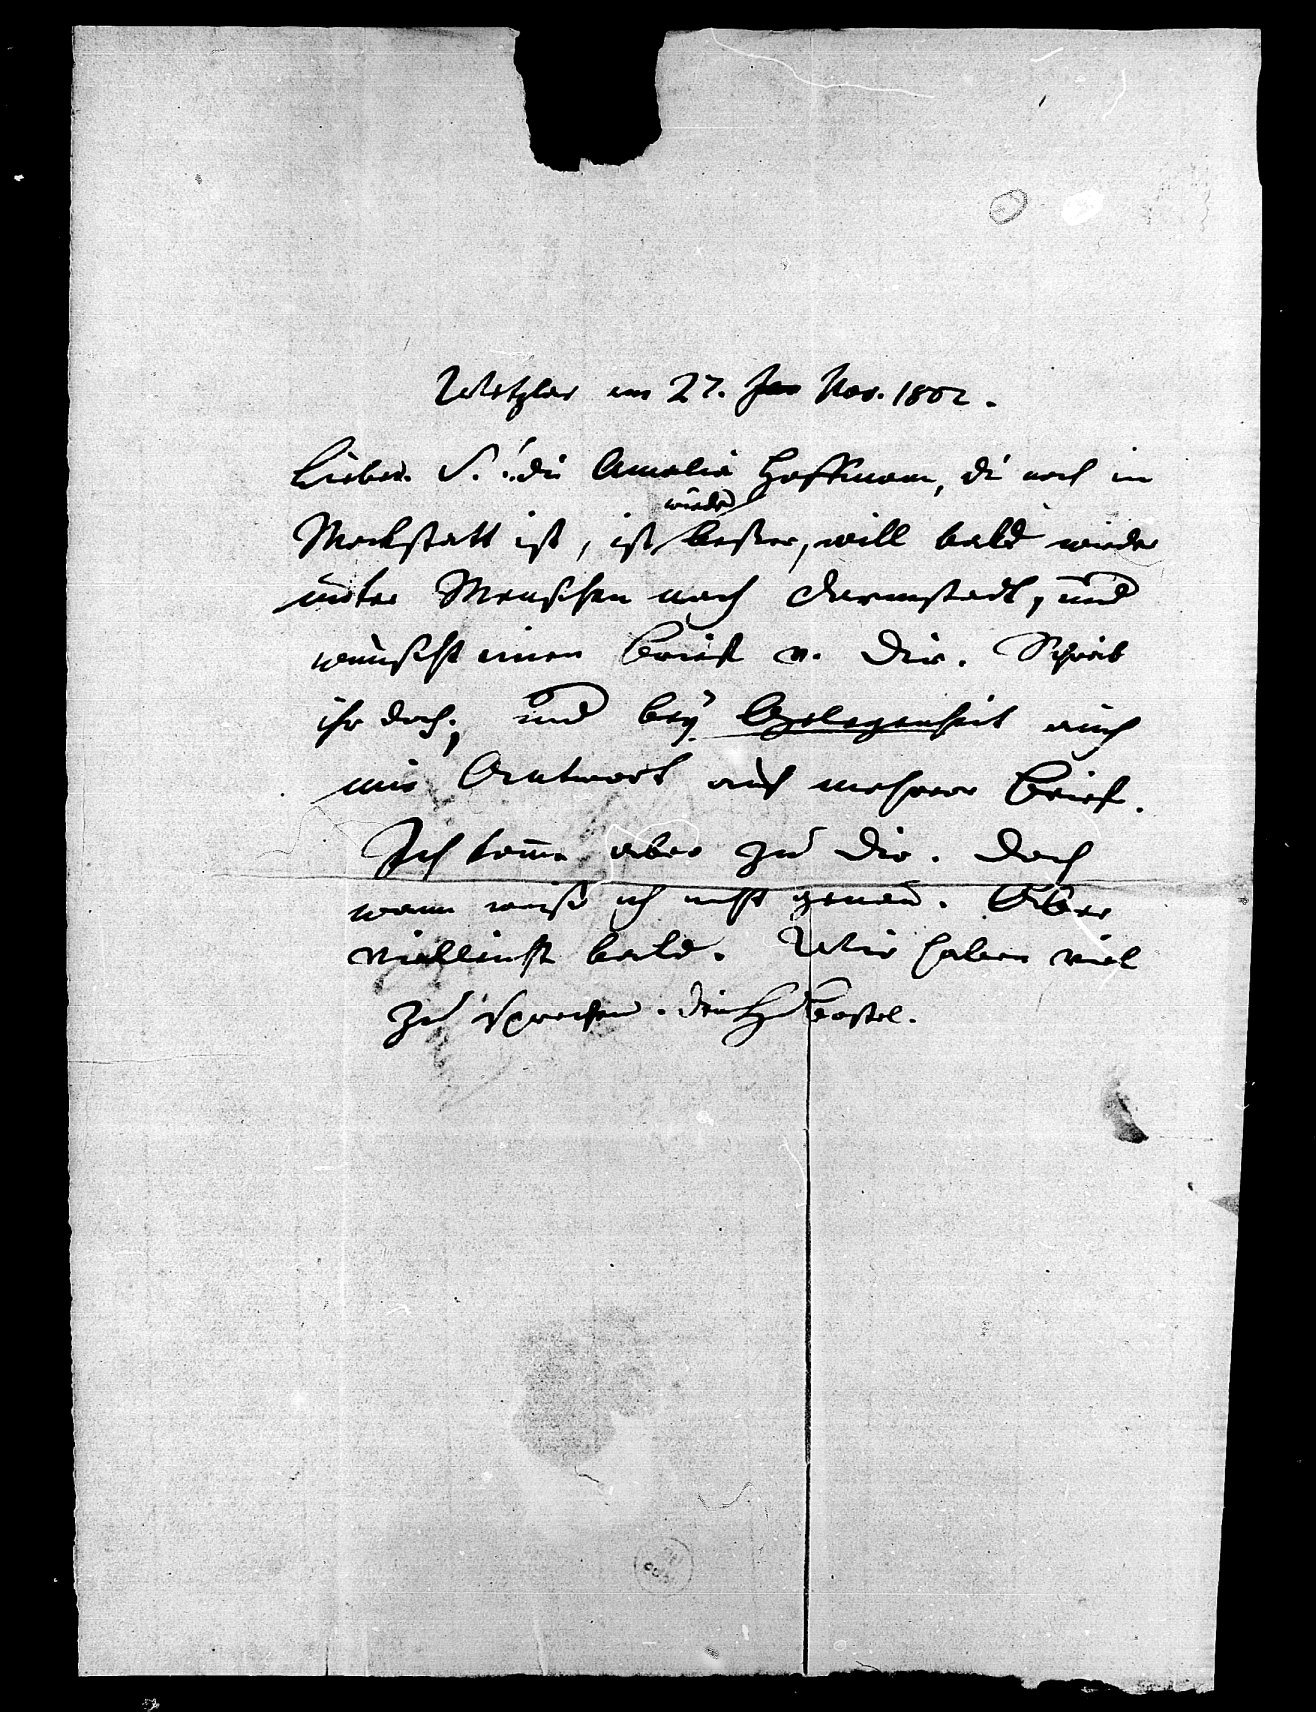 Wetzlar am 27. Jan Nov. 1802.
Lieber S.! die Amalia Hoffmann, di noch in
ist, ist wieder besser, will bald wieder
unter Menschen nach Darmstadt, und
wünscht einen Brief v. Dir. Schreib
ihr doch; und bey Gelegenheit auch
mir Antwort auf mehrere Brief.
Ich komme aber zu Dir. Doch
wann weiß ich nicht genau. Aber
vielleicht bald. Wir haben viel
zu sprechen. dein H Bostel.